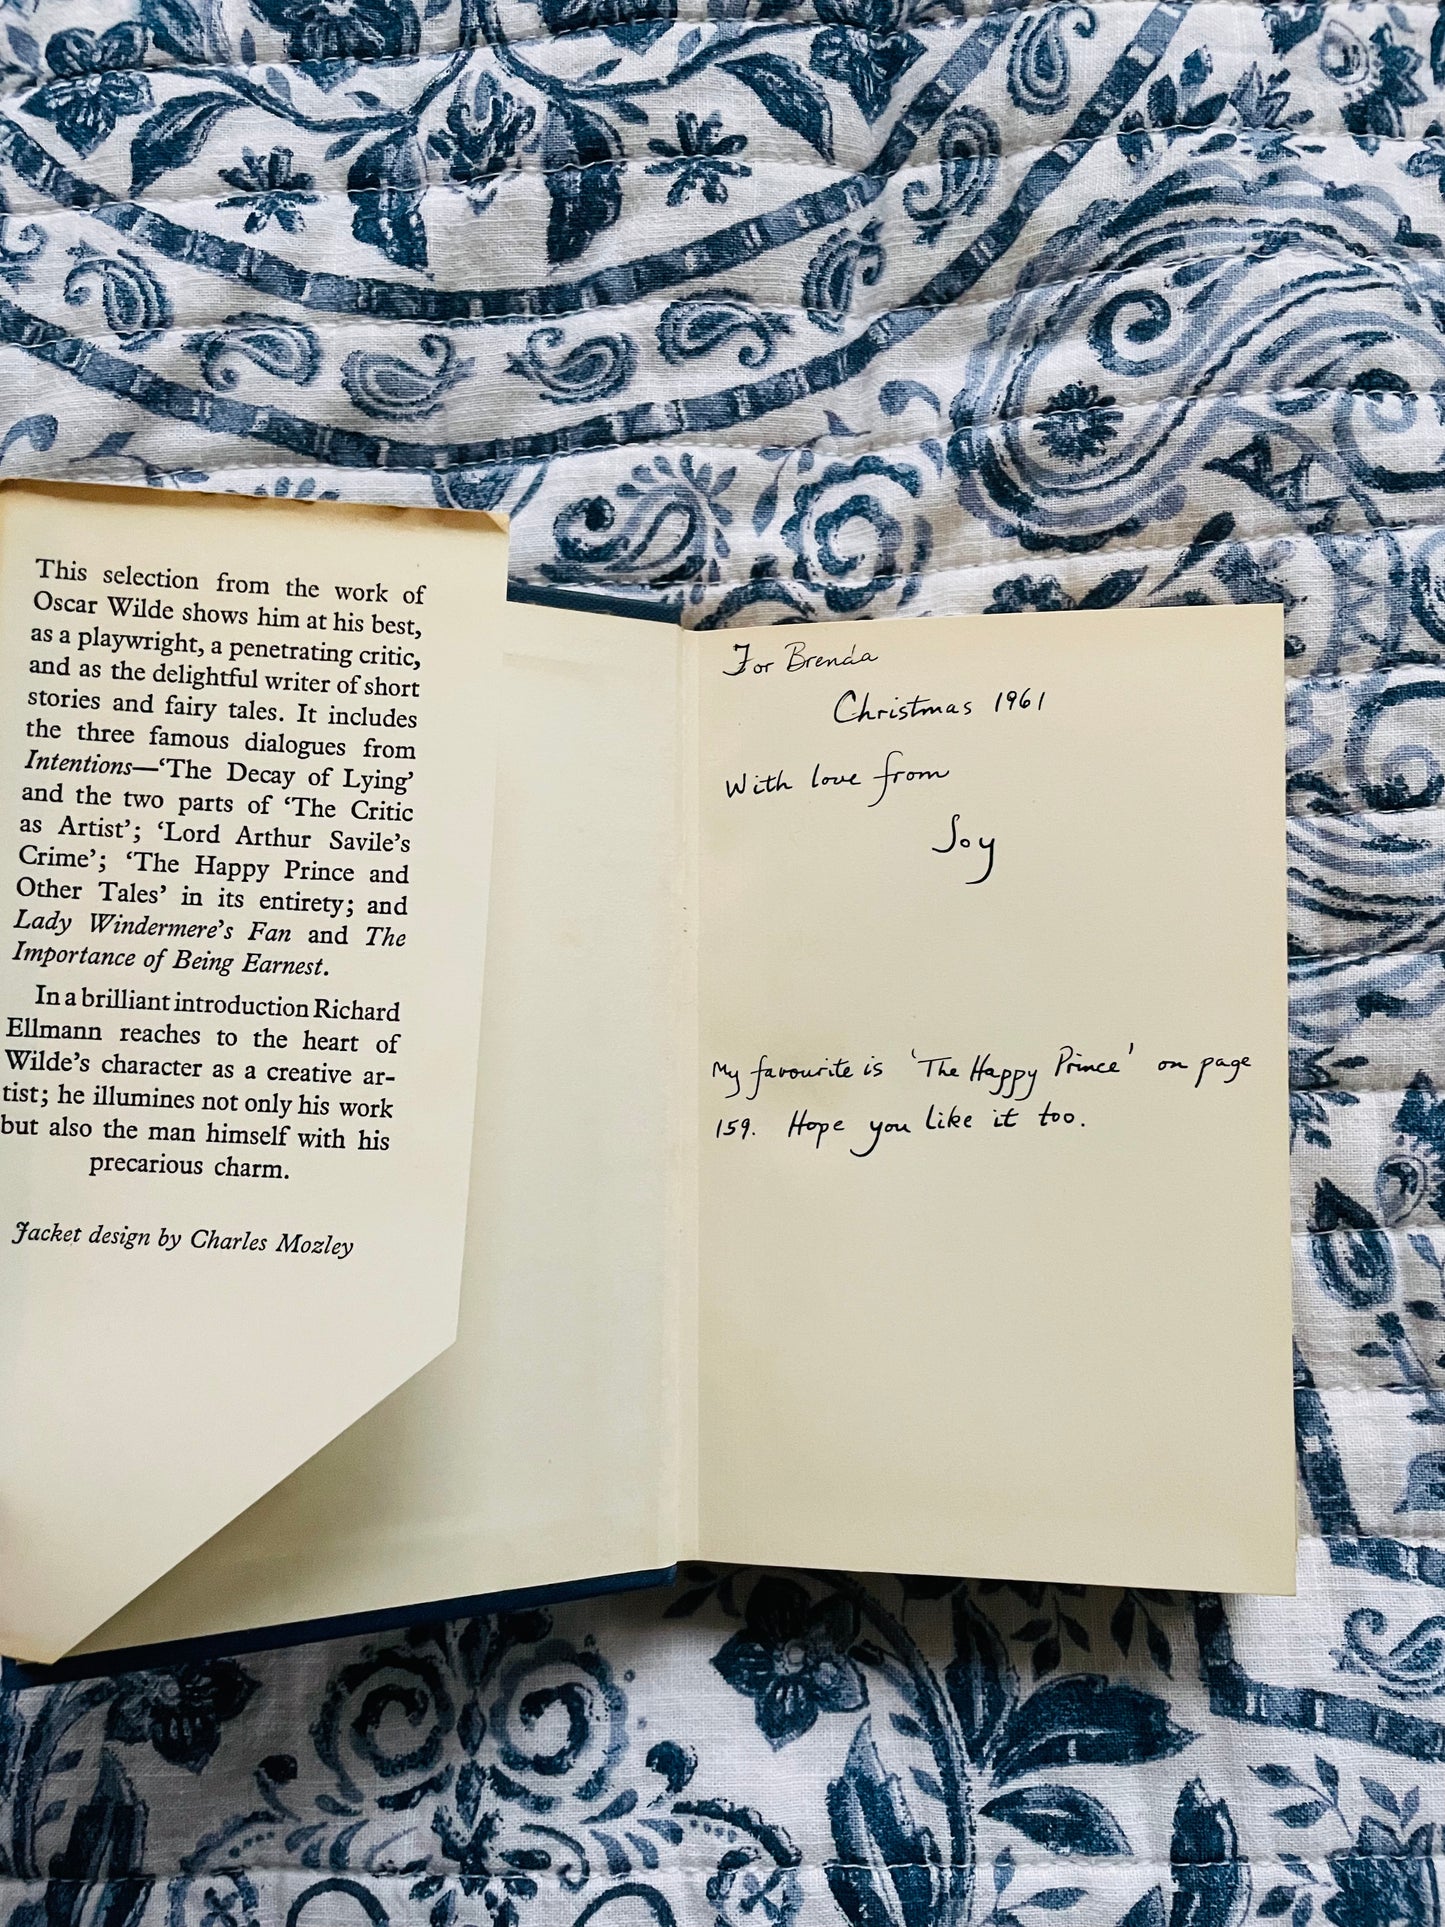 This selection from the work of
Oscar Wilde shows him at his best,
as a playwright, a penetrating critic,
and as the delightful writer of short
stories and fairy tales. It includes
the three famous dialogues from
Intentions—‘The Decay of Lying’
and the two parts of ‘The Critic
as Artist’; ‘Lord Arthur Savile’s
Crime’; ‘The Happy Prince and
Other Tales’ in its entirety; and
Lady Windermere’s Fan and The
Importance of Being Earnest.
In a brilliant introduction Richard
Ellmann reaches to the heart of
Wilde’s character as a creative ar-
tist; he illumines not only his work
but also the man himself with his
precarious charm.
Jacket design by Charles Mozley
For Brenda
Christmas 1961
With love from
Joy
My favourite is 'The Happy Prince' on page
159. Hope you like it too.